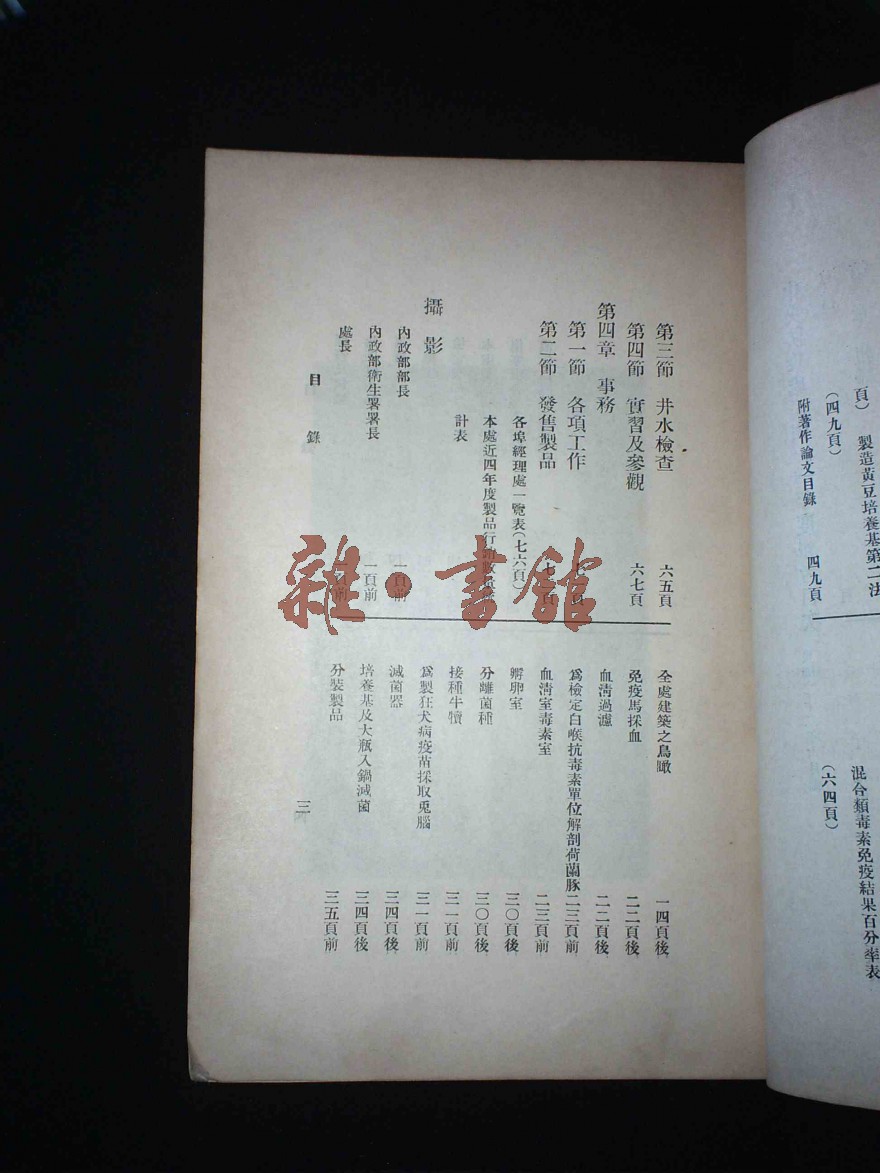 頁） 製造黃豆培養基第二法
（四九頁）
附著作論文目錄 四九頁
混合類毒素免疫結果百分率表
（六四頁）
第三節 井水檢查 六五頁
第四節 實習及參觀 六七頁
第四章 事務
第一節 各項工作 頁
第二節 發售製品 頁
各埠經理處一覽表（七六頁）
本處近四年度製品行
計表
攝影
內政部部長 一頁前
內政部衛生署署長 一頁前
處長 一頁前
全處建築之鳥瞰 一四頁後
免疫馬採血 二二頁後
血清過濾 二二頁後
爲檢定白喉抗毒素單位解剖荷蘭豚 二三頁前
血清室毒素室 二三頁前
孵卵室 三〇頁後
分離菌種 三〇頁後
接種牛犢 三一頁前
爲製狂犬病疫苗採取兎腦 三一頁前
滅菌器 三四頁後
培養基及大瓶入鍋滅菌 三四頁後
分裝製品 三五頁前
目錄
三
雜·書館